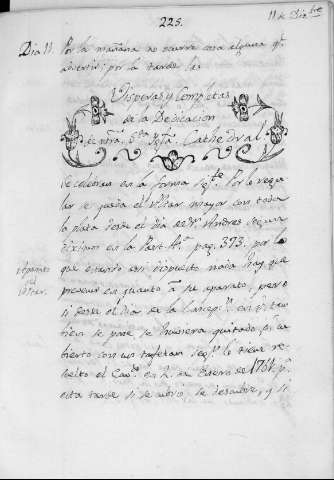 225.
11 de Dic.bre
Dia 11. Por la mañana no ocurre cosa alguna q.e
advertir; por la tarde las
Visperas y Completas
de la Dedicacion
de ntra. S.ta Igla. Cathedral
se celebran en la forma sig.te Por lo regu-
lar se queda el Altar mayor con toda
la plata desde el dia de Sn. Andres segun
diximos en la Part. A.a pag. 373. por lo
que estando asi dispuesto nada hay que
prevenir en quanto a su aparato, pero
si desde el dia de la Concep.n
se huviera quitado
bierto con un tafetan seg.n lo tiene re-
suelto el Cav.o en 2. de Enero de 1751. p.r
esta tarde si se cubrio, se descubre, y si
Altar.